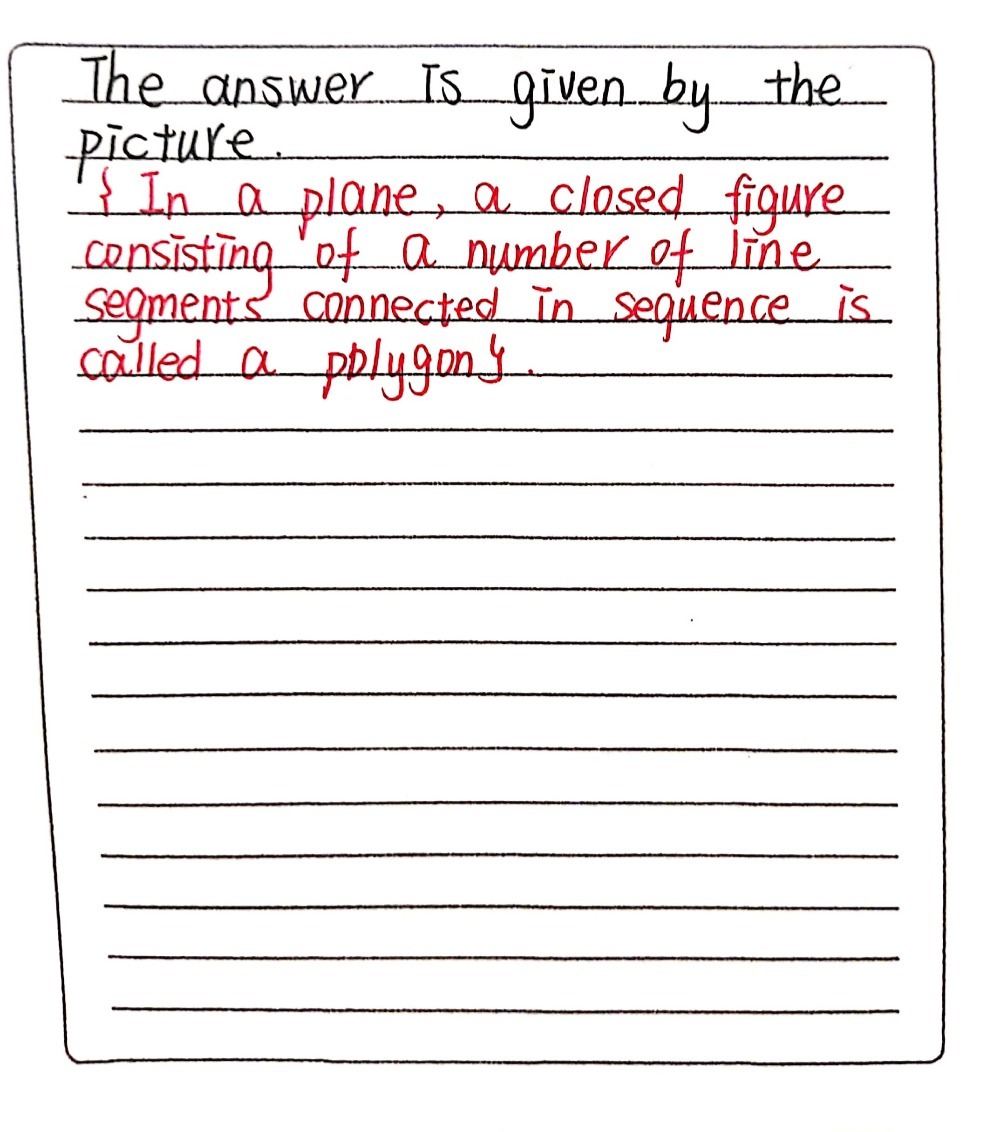 The answer is given by the
picture.
{In a plane, a closed figure
consisting of a number of line
segments connected in sequence is
called a polygon}.